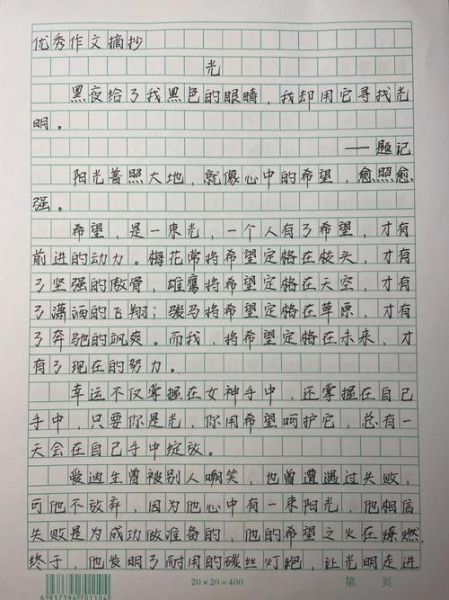 优秀作文摘抄
光
黑夜给了我黑色的眼睛，我却用它寻找光
明。
——题记
阳光普照大地，就像心中的希望，愈照愈
强。
希望，是一束光，一个人有了希望，才有
前进的动力。梅花常将希望定格在枝头，才有
了坚强的傲骨，雄鹰将希望定格在天空，才有
了潇洒的飞翔；骏马将希望定格在草原，才有
了奔驰的飒爽。而我，将希望定格在未来，才
有了现在的努力。
幸运不仅掌握在女神手中，还掌握在自己
手中，只要你是光，你用希望呵护它，总有一
天会在自己手中绽放。
爱迪生曾被别人嘲笑，也曾遭遇过失败，
可他不放弃，因为他心中有一束阳光，他相信
失败是为成功做准备的，他的希望之火在燎燃，
终于，他发明了耐用的碳丝灯炮，让光明走进
20×20=400
第 页
6937394701104